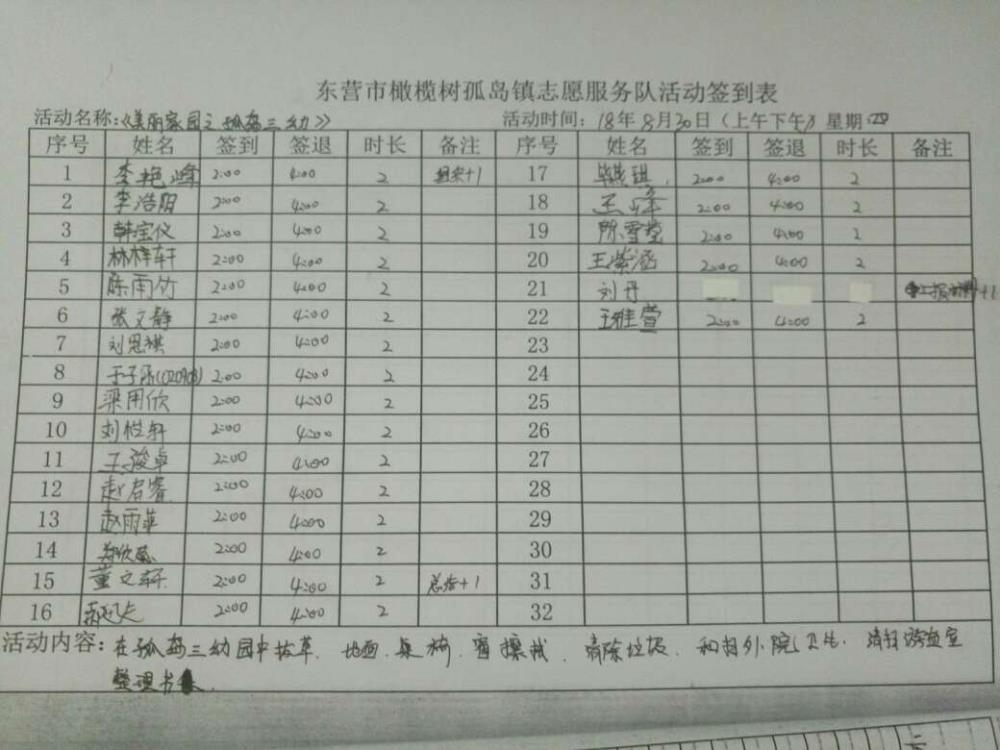 东营市橄榄树孤岛镇志愿服务队活动签到表
活动名称:《美丽家园之孤岛三幼》 活动时间: 18年8月30日(上午下午) 星期四
序号 姓名 签到 签退 时长 备注 序号 姓名 签到 签退 时长 备注
1 李艳峰 2:00 4:00 2 组织+1 17 2:00 4:00 2
2 李浩阳 2:00 4:00 2 18 王峰 2:00 4:00 2
3 韩宝仪 2:00 4:00 2 19 陈雪莹 2:00 4:00 2
4 林梓轩 2:00 4:00 2 20 王紫涵 2:00 4:00 2
5 陈雨竹 2:00 4:00 2 21 刘丹 上报材料+1
6 张文静 2:00 4:00 2 22 王雅萱 2:00 4:00 2
7 刘恩祺 2:00 4:00 2 23
8 于子涵(020908) 2:00 4:00 2 24
9 梁用欣 2:00 4:00 2 25
10 刘恺轩 2:00 4:00 2 26
11 王骏卓 2:00 4:00 2 27
12 赵启睿 2:00 4:00 2 28
13 赵雨菲 2:00 4:00 2 29
14 2:00 4:00 2 30
15 董文轩 2:00 4:00 2 总结+1 31
16 2:00 4:00 2 32
活动内容: 在孤岛三幼园中拔草、地面、桌椅、窗擦拭、清除垃圾、和扫外院卫生、清扫
整理书